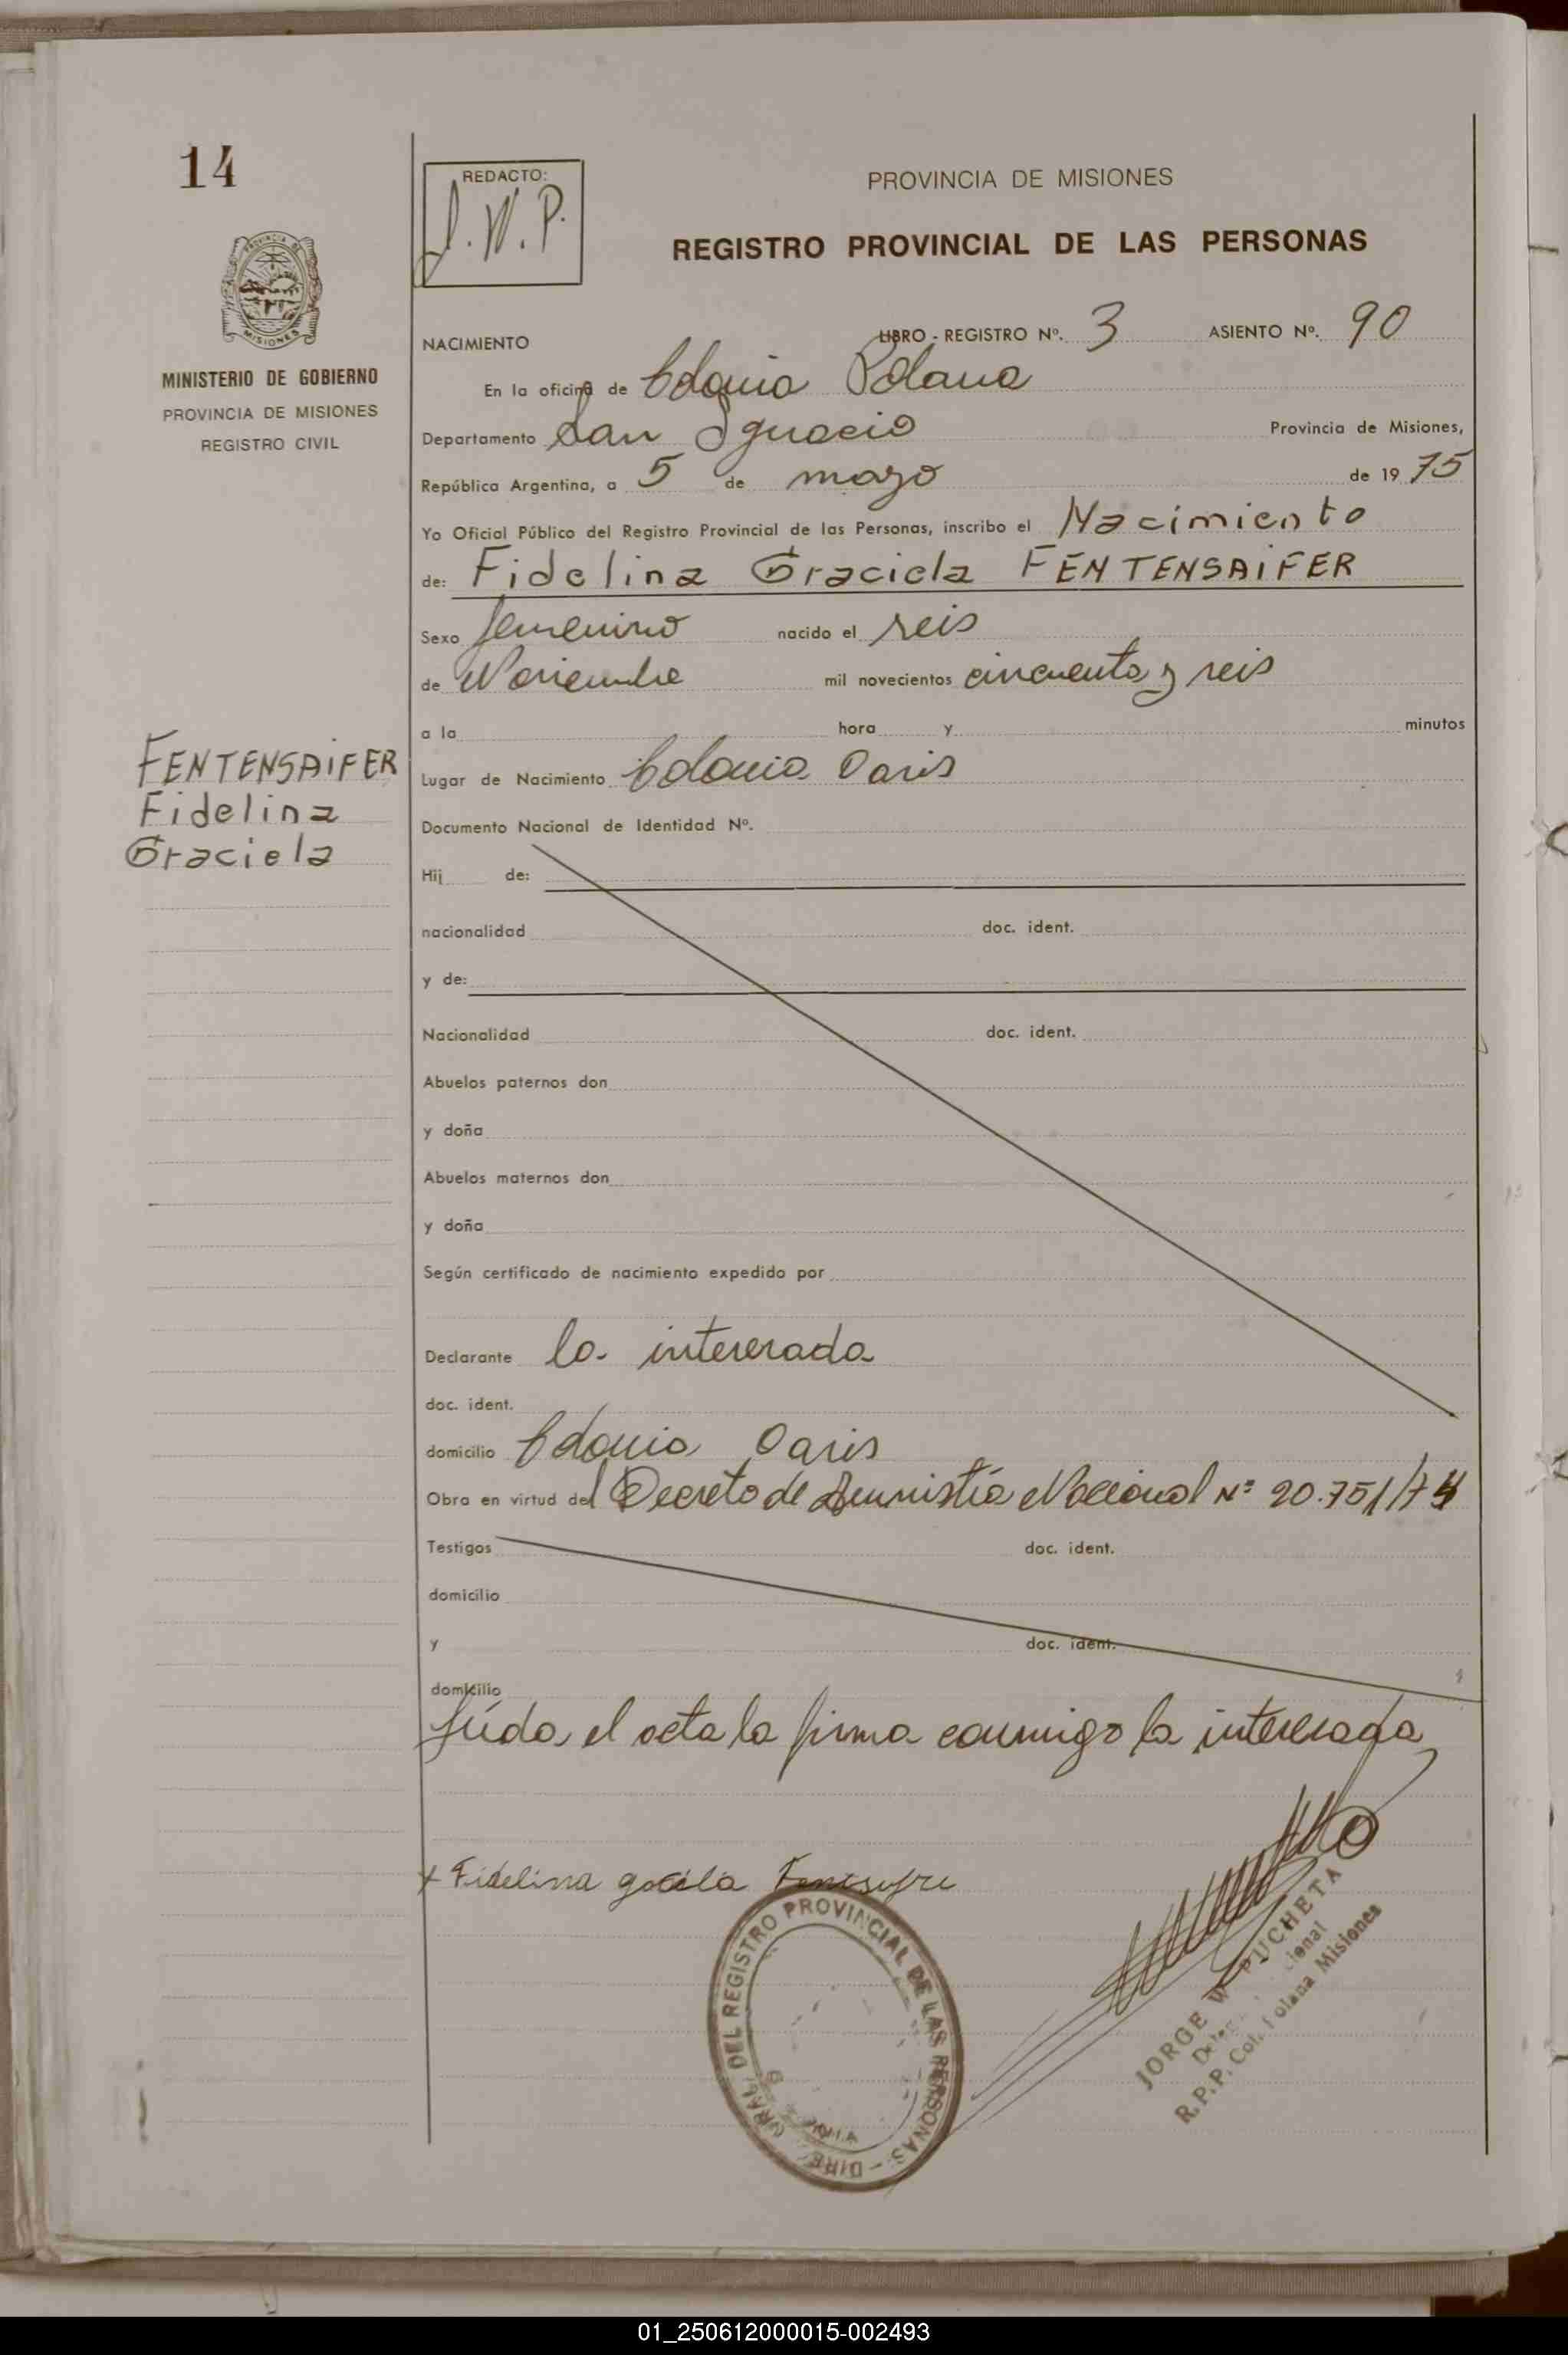 14
REDACTO:
J. W. P.
PROVINCIA DE MISIONES
REGISTRO PROVINCIAL DE LAS PERSONAS
MINISTERIO DE GOBIERNO
PROVINCIA DE MISIONES
REGISTRO CIVIL
NACIMIENTO LIBRO - REGISTRO Nº. 3 ASIENTO Nº. 90
En la oficina de Colonia Polana
Departamento San Ignacio Provincia de Misiones,
República Argentina, a 5 de mayo de 1975
Yo Oficial Público del Registro Provincial de las Personas, inscribo el Nacimiento
de: Fidelina Graciela FENTENSAIFER
Sexo femenino nacido el seis
de Noviembre mil novecientos cincuenta y seis
a la hora y minutos
FENTENSAIFER
Fidelina
Graciela
Lugar de Nacimiento Colonia Oasis
Documento Nacional de Identidad Nº.
Hij de:
nacionalidad doc. ident.
y de:
Nacionalidad doc. ident.
Abuelos paternos don
y doña
Abuelos maternos don
y doña
Según certificado de nacimiento expedido por
Declarante la interesada
doc. ident.
domicilio Colonia Oasis
Obra en virtud del Decreto de Amnistía Nacional Nº 20.751/74
Testigos doc. ident.
domicilio
y doc. ident.
domicilio
Leída el acta la firma conmigo la interesada
x Fidelina
GRAL. DEL REGISTRO PROVINCIAL DE LAS PERSONAS - DIREC
JORGE W. PUCHETA
R.P.P. Col. Polana Misiones
01_250612000015-002493